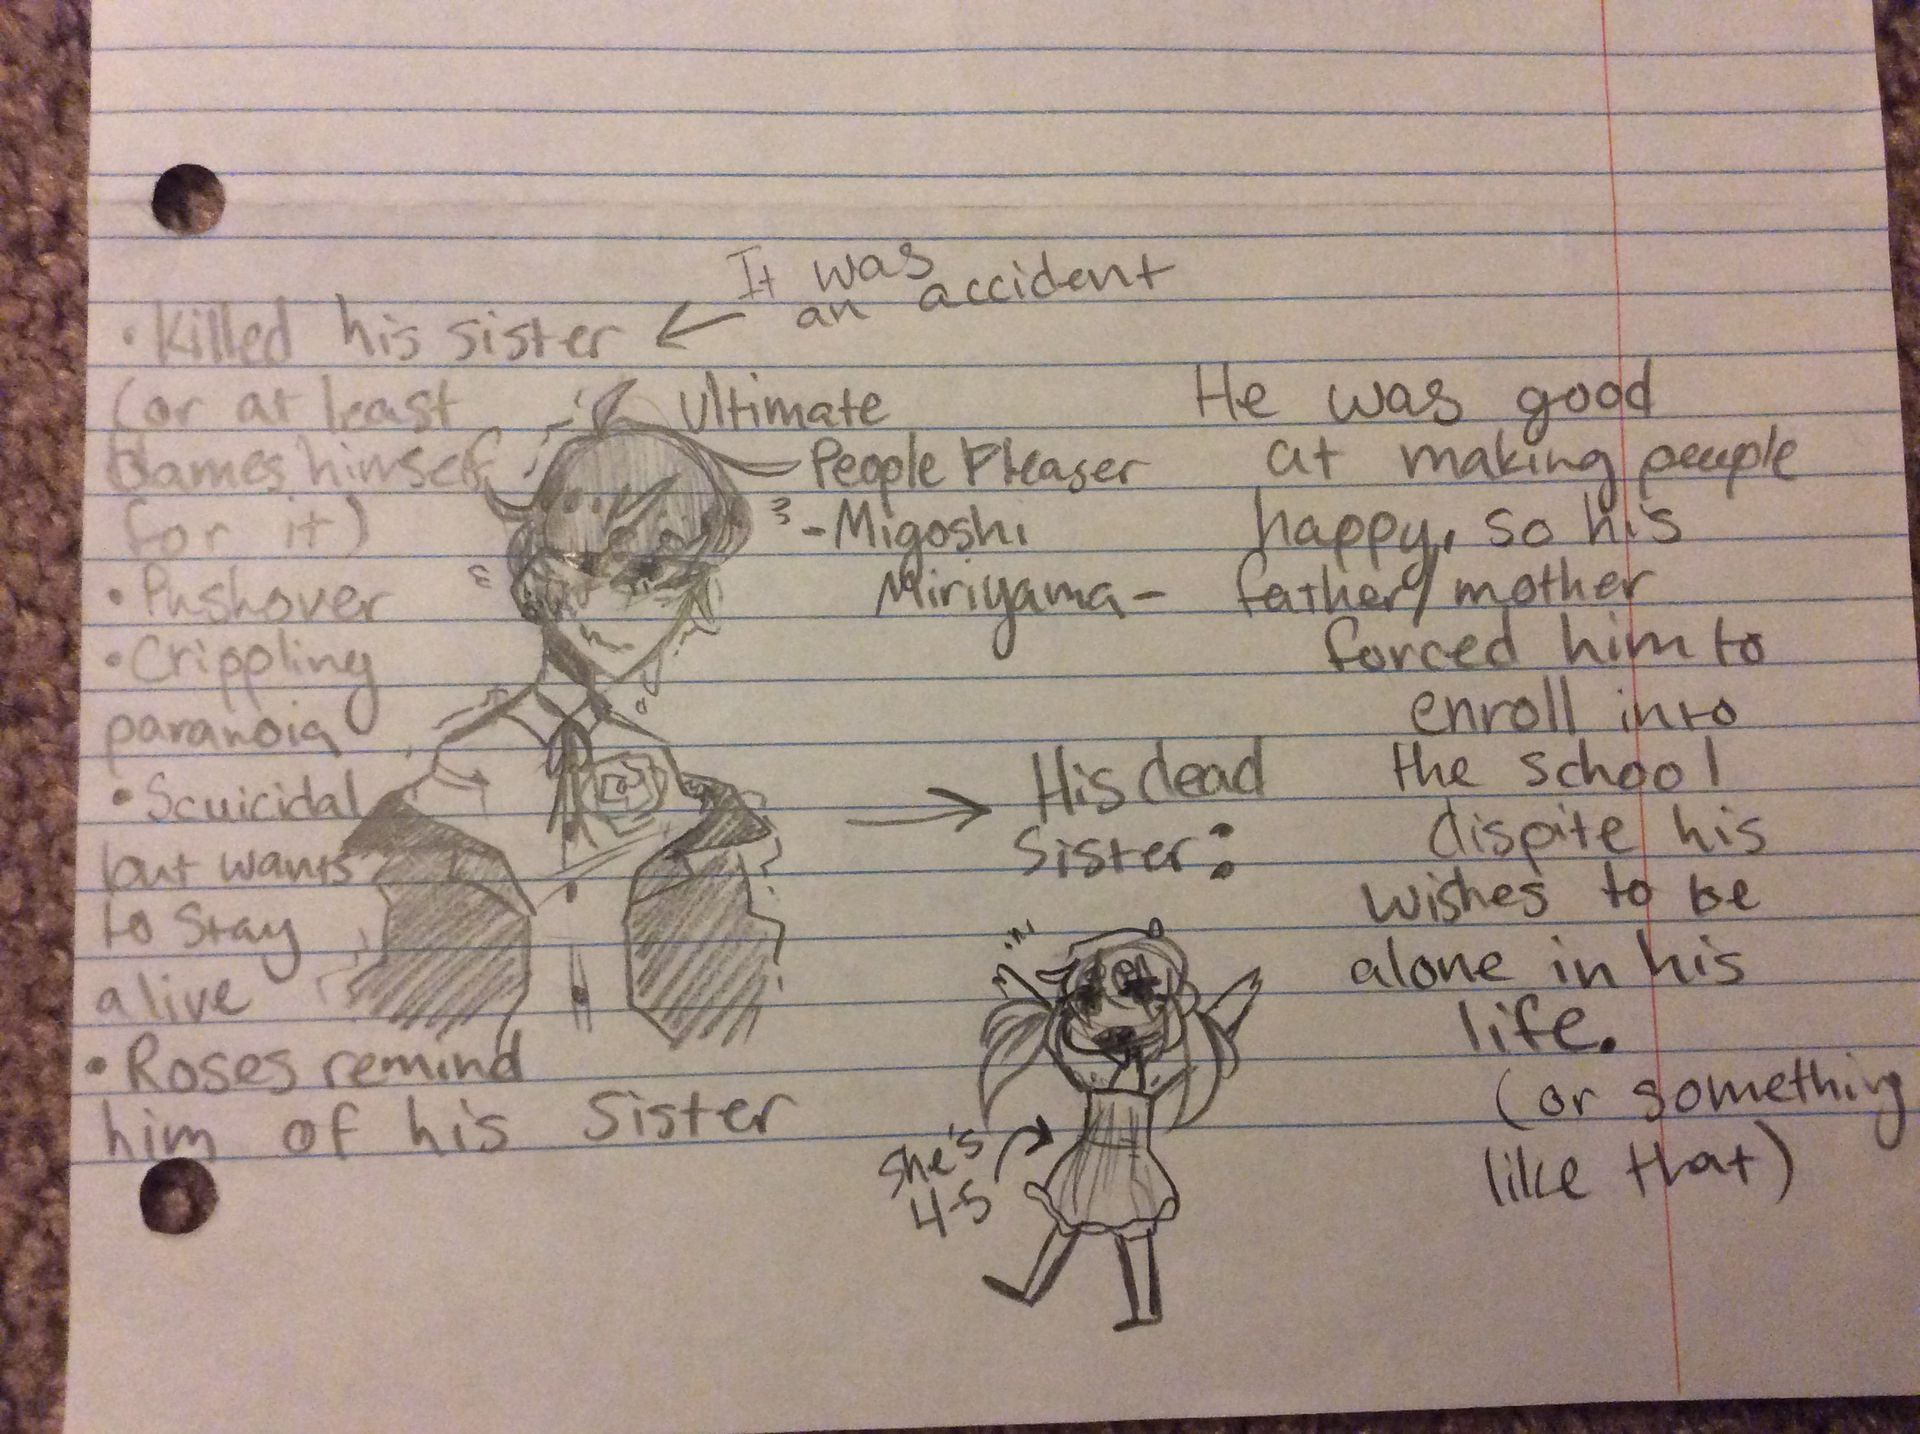 It was
an accident
• Killed his sister
(or at least
blames himself
for it)
• Pushover
• Crippling
paranoia
• Scuicidal
but wants
to stay
alive
• Roses remind
him of his sister
Ultimate
People Pleaser
-Migoshi
Miriyama-
His dead
sister:
She's
4-5
He was good
at making people
happy, so his
father/mother
forced him to
enroll into
the school
dispite his
wishes to be
alone in his
life.
(or something
like that)